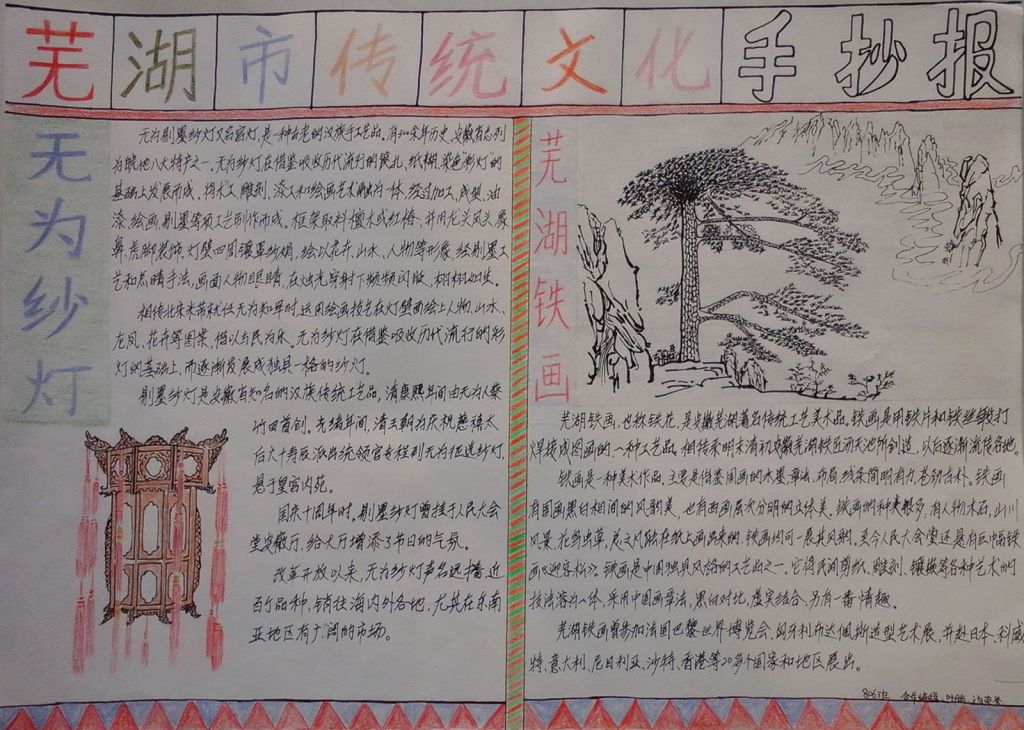 芜湖市传统文化手抄报
无为纱灯
无为剔墨纱灯又名宫灯,是一种古老的汉族手工艺品,有300余年历史,安徽省志列
为皖地八大特产之一。无为纱灯在借鉴吸收历代流行的镂孔、纸糊、染色彩灯的
基础上发展而成,将木工、雕刻、漆工和绘画艺术融为一体,经过加工、成型、油
漆、绘画、剔墨等项工艺制作而成。框架取料檀木或红椿,并用龙头凤头、象
鼻、虎脚装饰,灯壁四周镶罩纱绢,绘以花卉、山水、人物等形象,经剔墨工
艺和点睛手法,画面人物眼睛,在烛光穿射下频频闪眨,栩栩如生。
相传北宋米芾就任无为知军时,运用绘画技艺在灯壁面绘上人物、山水、
龙凤、花卉等图案,借以与民为乐。无为纱灯在借鉴吸收历代流行的彩
灯的基础上,而逐渐发展成独具一格的纱灯。
剔墨纱灯是安徽省知名的汉族传统工艺品,清康熙年间由无为人柴
竹田首创。光绪年间,清王朝为庆祝慈禧太
后六十寿辰派出统领官专程到无为征选纱灯,
悬于皇宫内苑。
国庆十周年时,剔墨纱灯曾挂于人民大会
堂安徽厅,给大厅增添了节日的气氛。
改革开放以来,无为纱灯声名远播,近
百个品种,销往海内外各地,尤其在东南
亚地区有广阔的市场。
芜湖铁画
芜湖铁画,也称铁花,是安徽芜湖著名传统工艺美术品。铁画是用铁片和铁丝锻打
焊接成图画的一种工艺品,相传系明末清初安徽芜湖铁匠汤天池所创造,以后逐渐流传各地。
铁画是一种美术作品,主要是借鉴国画的水墨章法,布局线条简明有力,苍劲古朴。铁画
有国画黑白相间的风韵美,也有西画层次分明的立体美。铁画的种类很多,有人物木石,山川
风景,花卉虫草,总之凡能在纸上画出来的,铁画均可一展其风韵。至今人民大会堂还悬有巨幅铁
画《迎客松》。铁画是中国独具风格的工艺品之一。它将民间剪纸、雕刻、镶嵌等各种艺术的
技法溶为一体,采用中国画章法,黑白对比,虚实结合,另有一番情趣。
芜湖铁画曾参加法国巴黎世界博览会、匈牙利布达佩斯造型艺术展,并赴日本、科威
特、意大利、尼日利亚、沙特、香港等20多个国家和地区展出。
806班